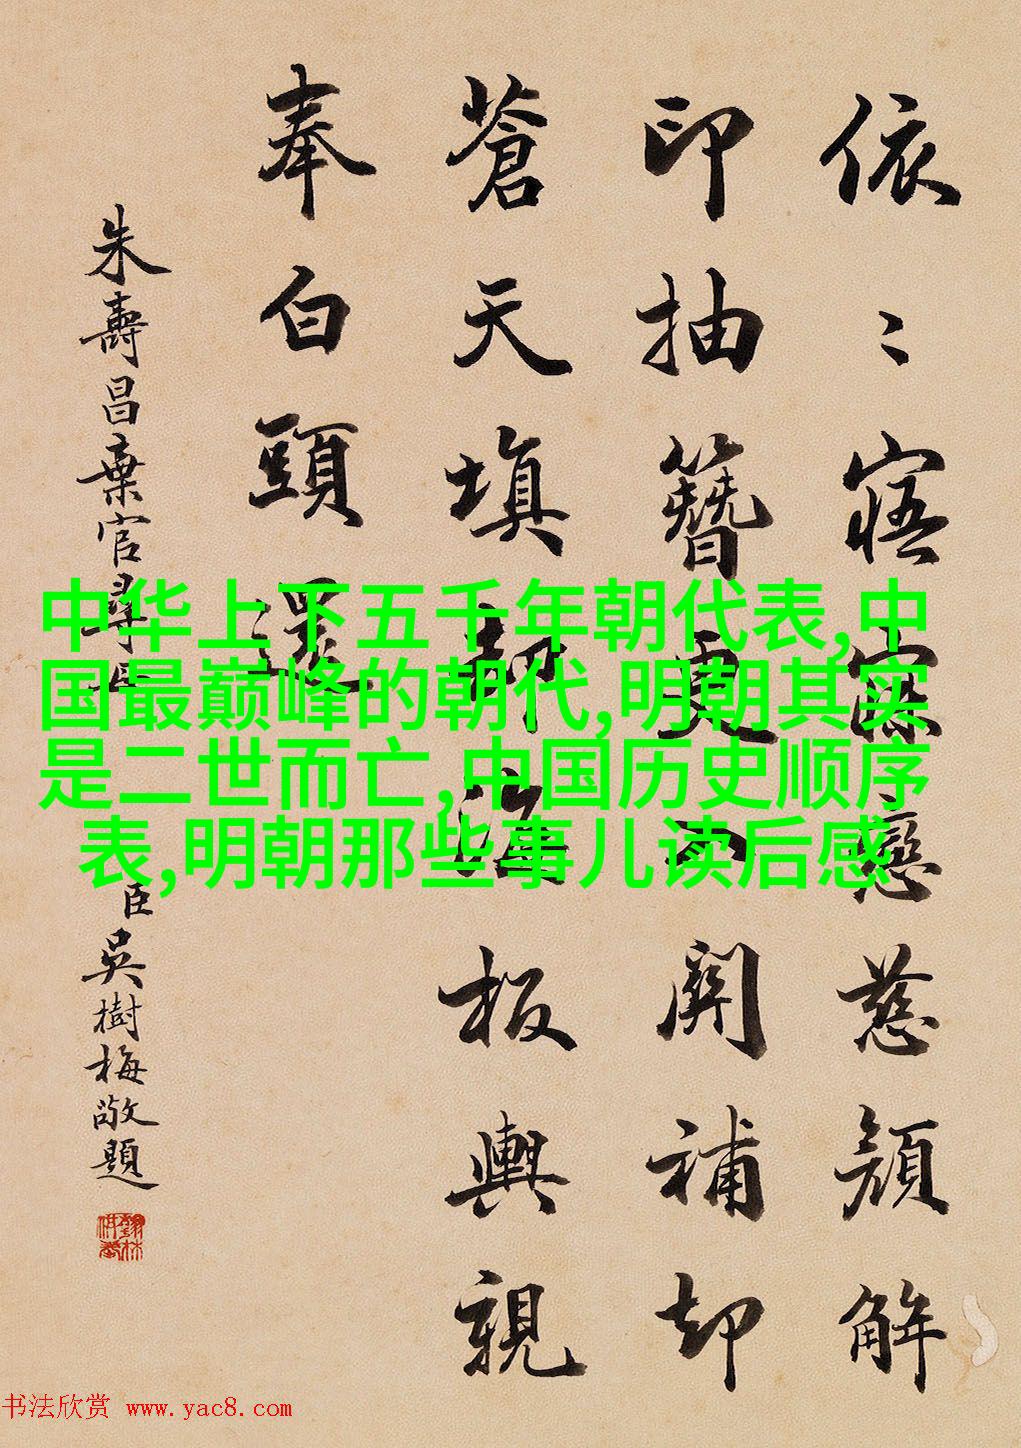 依〻寤寐戀慈顔解
印抽簪更關補却
蒼天填却海板輿親
奉白頭還
朱壽昌棄官尋母
臣吳樹梅敬題
中华上下五千年朝代表,中
国最巅峰的朝代,明朝其实
是二世而亡,中国历史顺序
表,明朝那些事儿读后感
书法欣赏 www.yac8.com